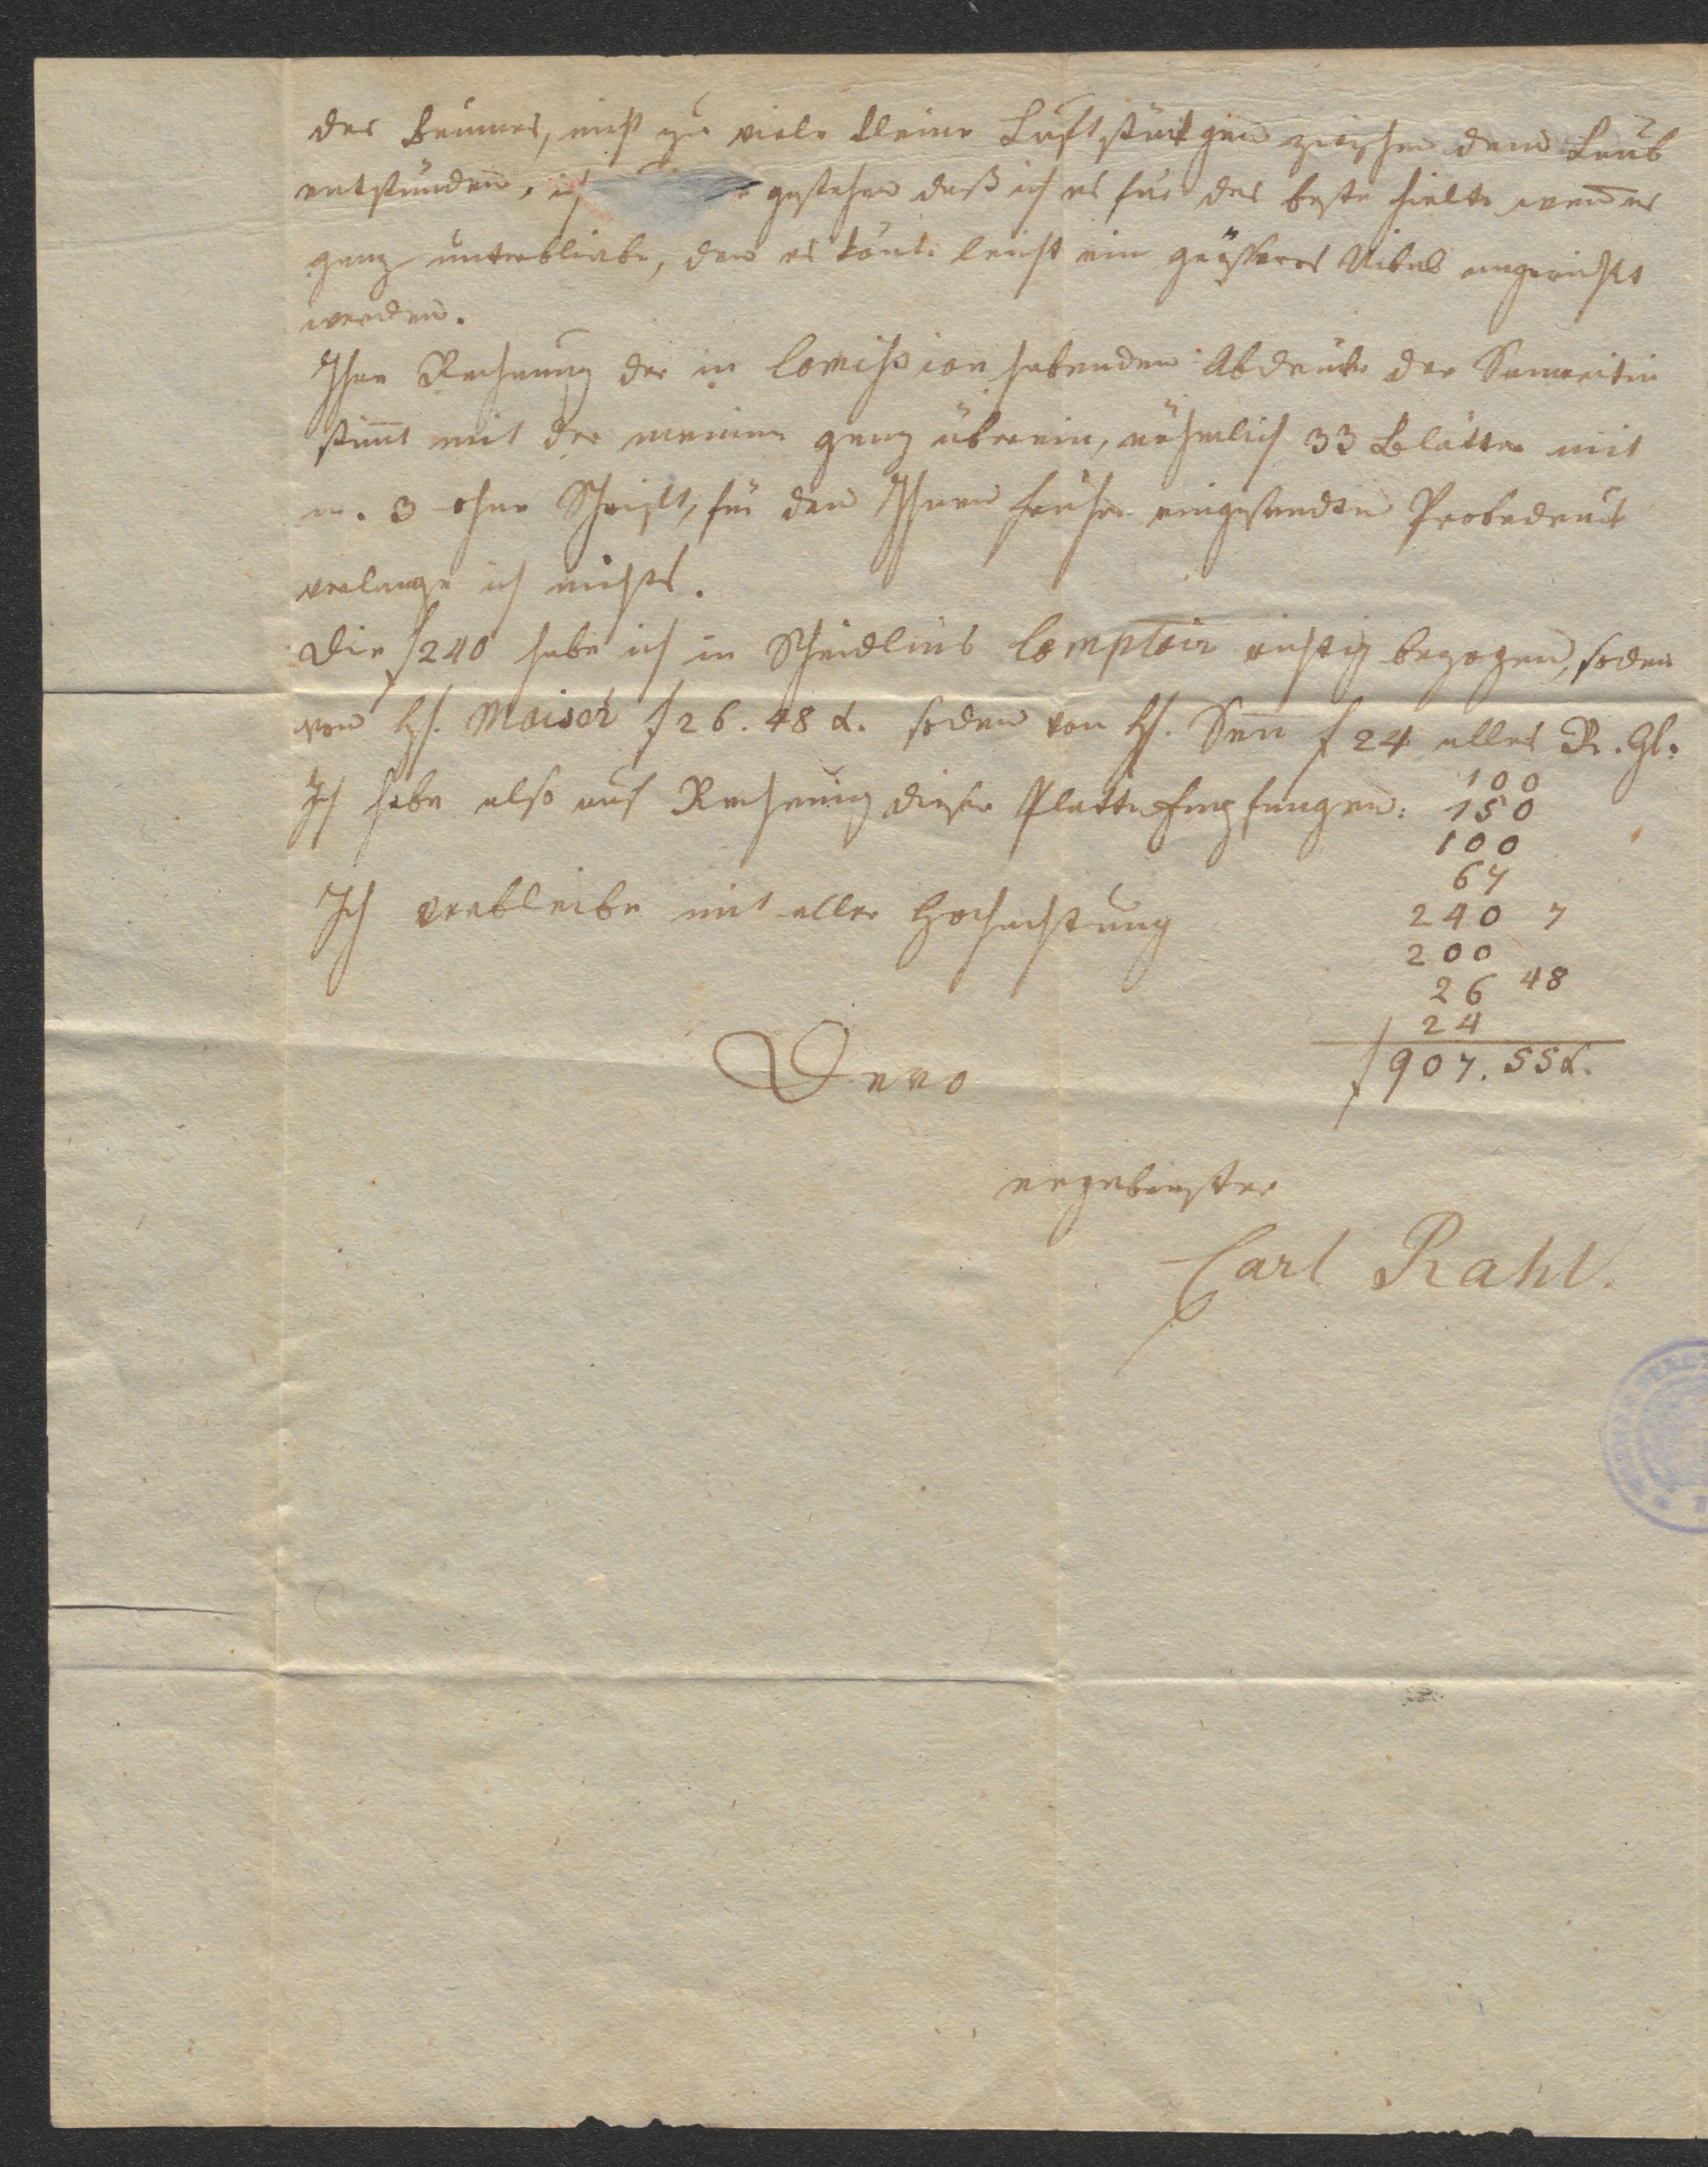 des Baumes, nicht zu viele kleine Luftstückgen zwischen dem Laub
entstünden, ich gestehen daß ich es für das beste hielte wen̄ es
ganz unterbliebe, den es könte leicht ein grösseres Uibel angericht
werden.
Ihre Rechnung der in Com̄ission habenden Abdrücke der Samaritin
stim̄t mit der meinen ganz überein, nähmlich 33 Blätter mit
u. 3 ohne Schrift, für den Ihnen früher eingesandten Probedruck
verlange ich nichts.
Die f 240 habe ich in Scheidlins Comptoir richtig bezogen, sodan
von H. Maiser f 26. 48 x. sodan von H. Sen̄ f 24 alles R. Gl.
Ich habe also auf Rechnung dieser Platte Empfangen: 100
150
100
67
240 7
200
26 48
24
f 907. 55 x.
Ich verbleibe mit aller Hochachtung
Dero
ergebenster
Carl Rahl.